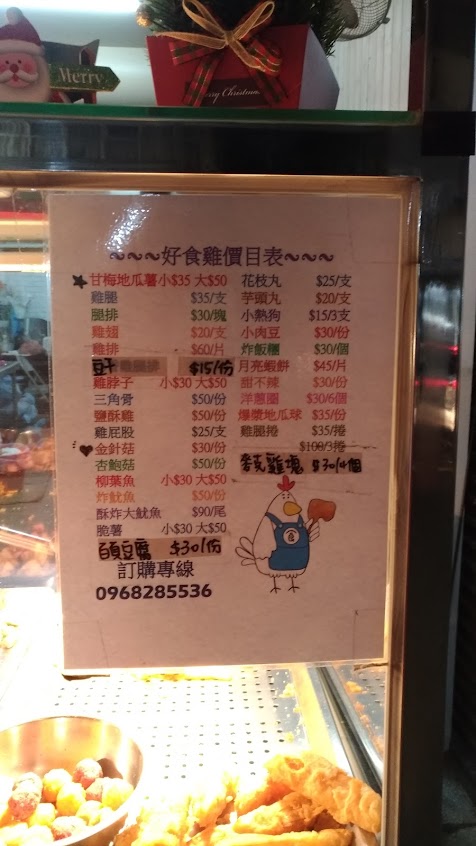 Merry
Merry Christmas
~~~好食雞價目表~~~
甘梅地瓜薯 小$35 大$50
雞腿 $35/支
腿排 $30/塊
雞翅 $20/支
雞排 $60/片
豆干 $15/份
雞脖子 小$30 大$50
三角骨 $50/份
鹽酥雞 $50/份
雞屁股 $25/支
金針菇 $30/份
杏鮑菇 $50/份
柳葉魚 小$30 大$50
炸魷魚 $50/份
酥炸大魷魚 $90/尾
脆薯 小$30 大$50
百頁豆腐 $30/份
花枝丸 $25/支
芋頭丸 $20/支
小熱狗 $15/3支
小肉豆 $30/份
炸飯糰 $30/個
月亮蝦餅 $45/片
甜不辣 $30/份
洋蔥圈 $30/6個
爆漿地瓜球 $35/份
雞腿捲 $35/捲
$100/3捲
麥克雞塊 $30/4個
食
訂購專線
0968285536